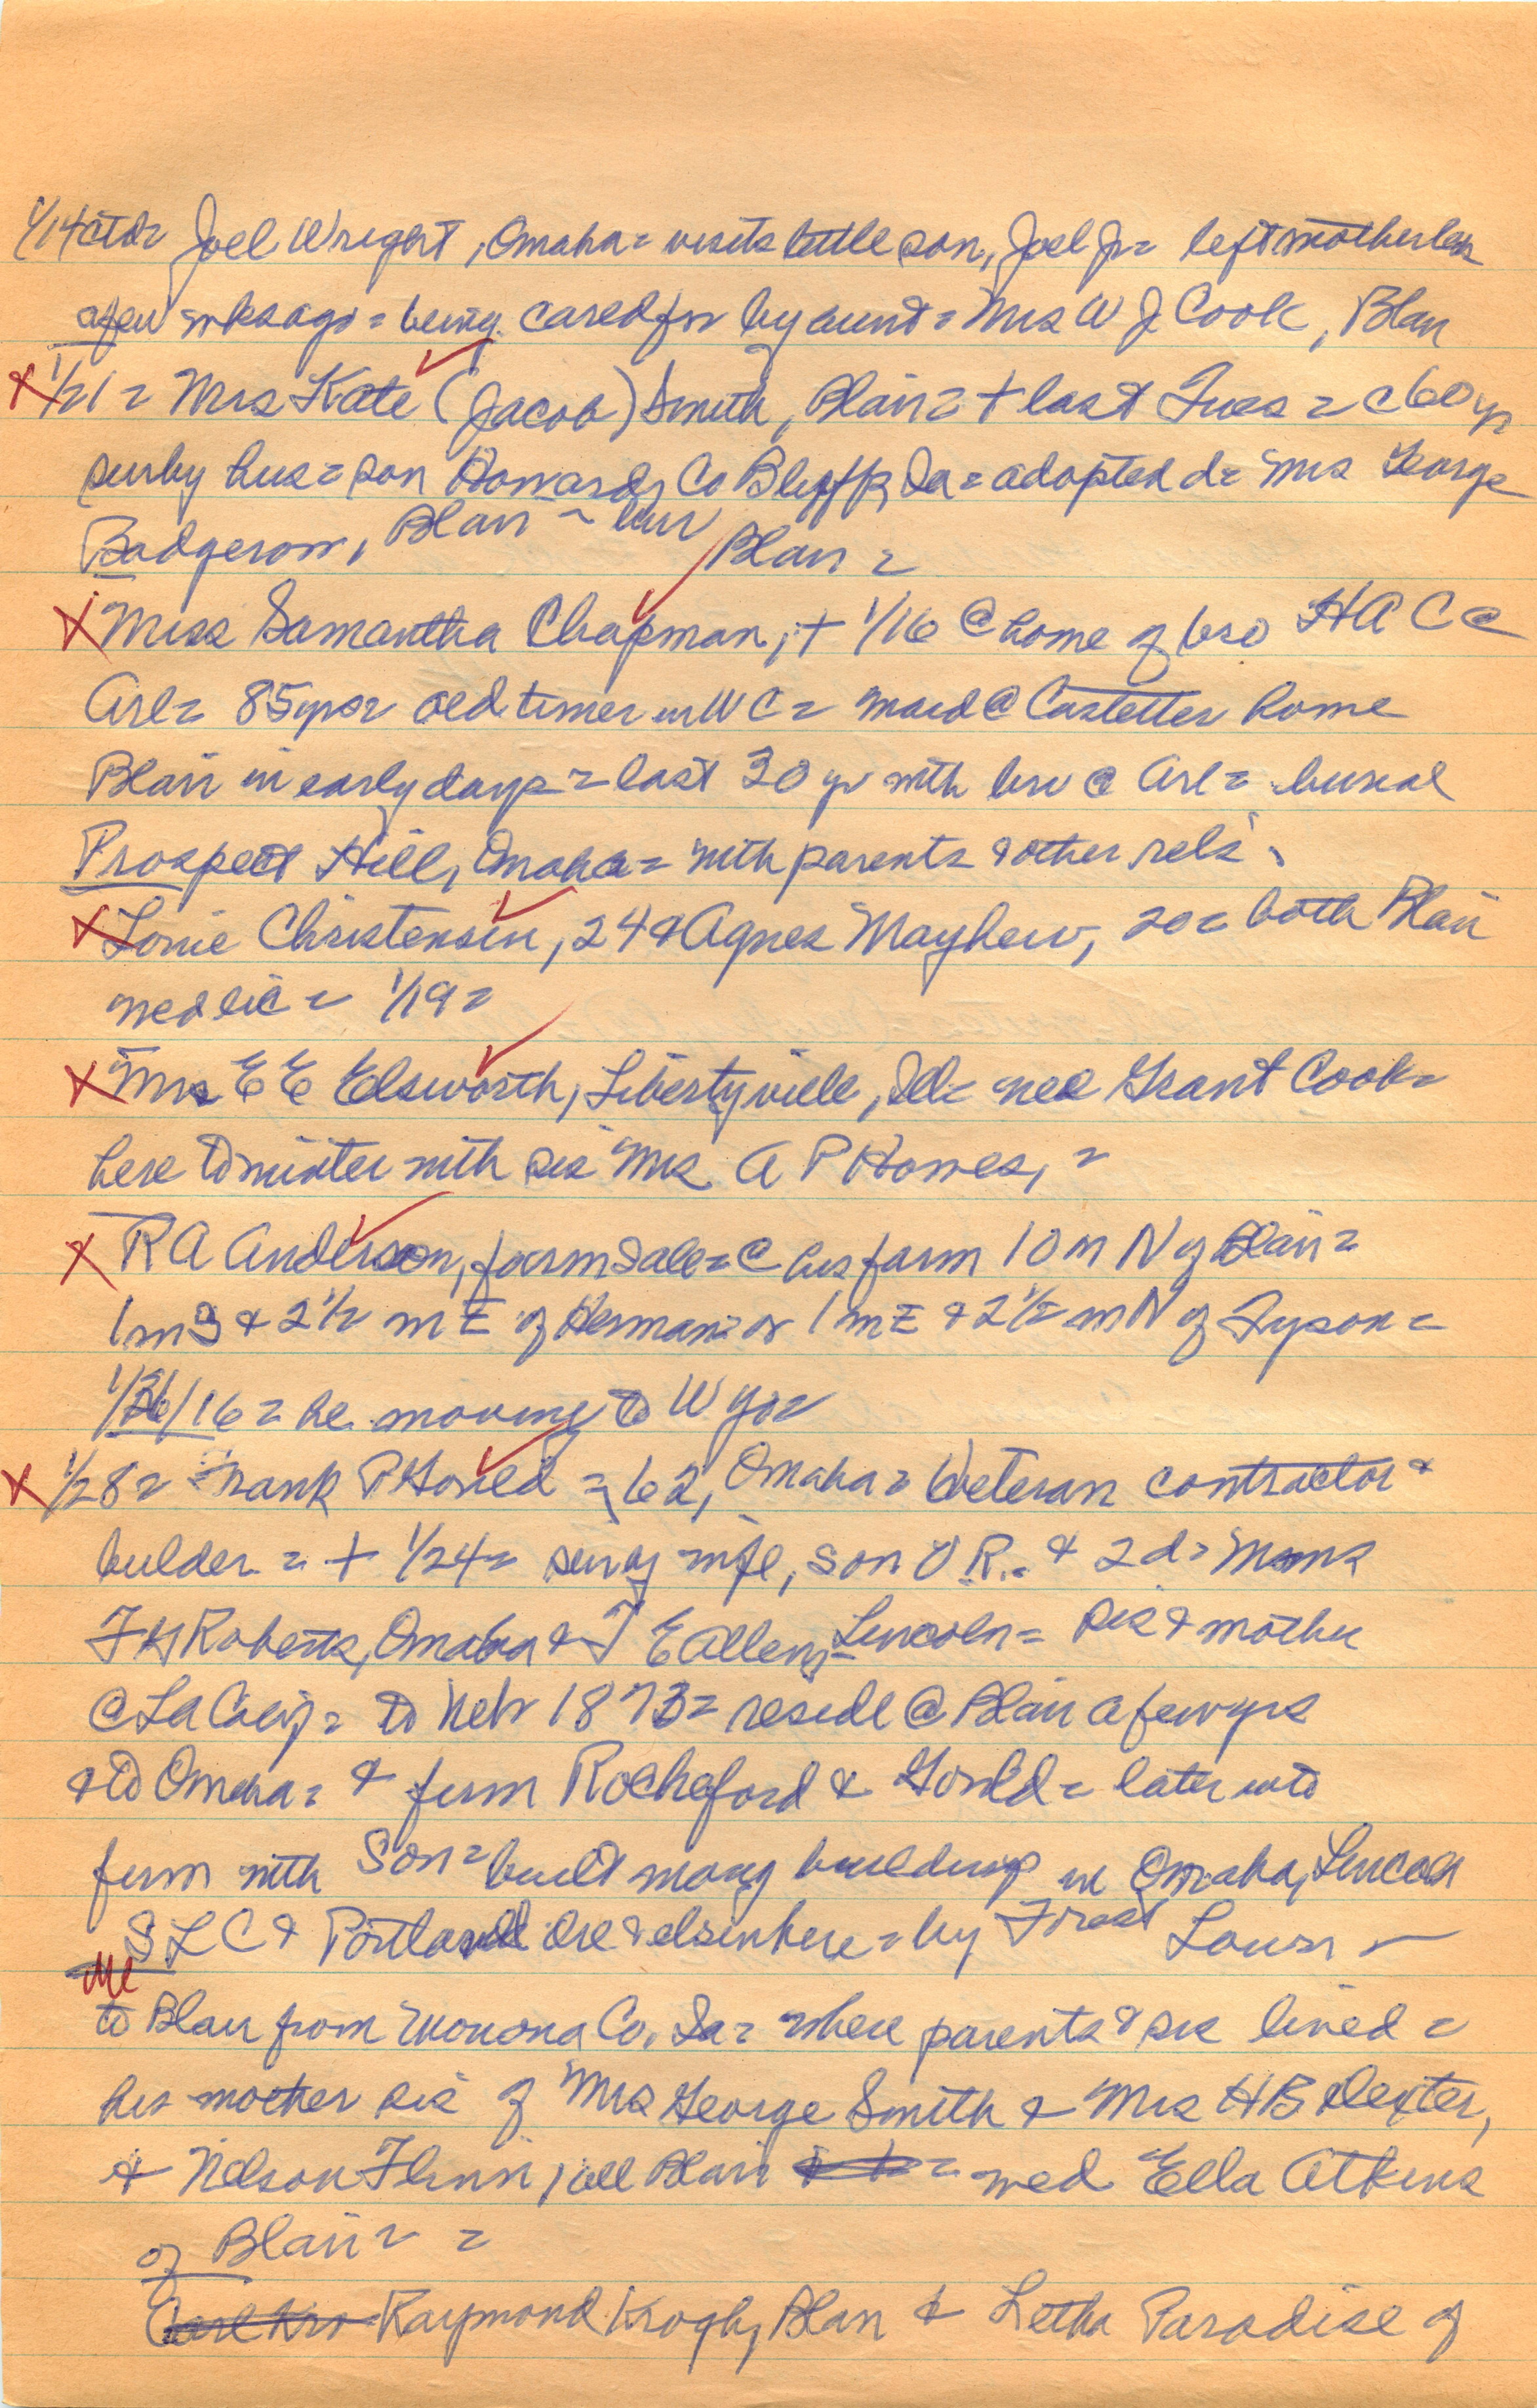 1/14 ctd= Joel Wright, Omaha= visits little son, Joel Jr= left motherless
a few wks ago= being cared for by aunt= Mrs W J Cook, Blair
x 1/21= Mrs Kate (Jacob) Smith, Blair= + last Tues= c 60 yr
surby hus= son Howard, Co Bluffs, Ia= adopted d= Mrs George
Badgerow, Blair ~ bur Blair=
x Miss Samantha Chapman, + 1/16 @ home of bro H A C @
Arl= 85 yrs= old timer in W C= maid @ Castetter home
Blair in early days= last 30 yr with bro @ Arl= burial
Prospect Hill, Omaha= with parents & other rels
x Lonie Christensen, 24 & Agnes Mayhew, 20= both Blair
wed lic= 1/19=
x Mrs E E Elsworth, Libertyville, Ill= nee Grant Cook=
here to winter with sis Mrs A P Howes, =
x R A Anderson, farm sale= @ his farm 10 m N of Blair=
1 m S & 2 1/2 m E of Herman= or 1 m E & 2 1/2 m N of Tyson=
1/26/16= he moving to Wyo=
x 1/28= Frank P Gould= 62, Omaha= Veteran contractor &
builder= + 1/24= surby wife, son O R. & 2 d= Mmes
F H Roberts, Omaha & T E Allen, Lincoln= sis & mother
@ La= to Neb 1873= reside @ Blair a few yrs
& to Omaha= & firm Rocheford & Gould= later into
firm with Son= built many buildings in Omaha, Lincoln
SLC & Portland Ore & elsewhere= by
Me
to Blair from Monona Co, Ia= where parents & sis lived=
his mother sis of Mrs George Smith & Mrs H B Dexter,
& Nelson Flinn, all Blair = wed Ella Atkins
of Blair= =
Carl Kro Raymond Krogh, Blair & Letha Paradise of